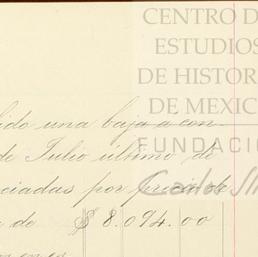 CENTRO D
ESTUDIOS
DE HISTOR
DE MEXIC
FUNDACIÓ
Carlos Sl
ido una baja á con
de Julio último de
ciadas por precio de
de $8.094.00